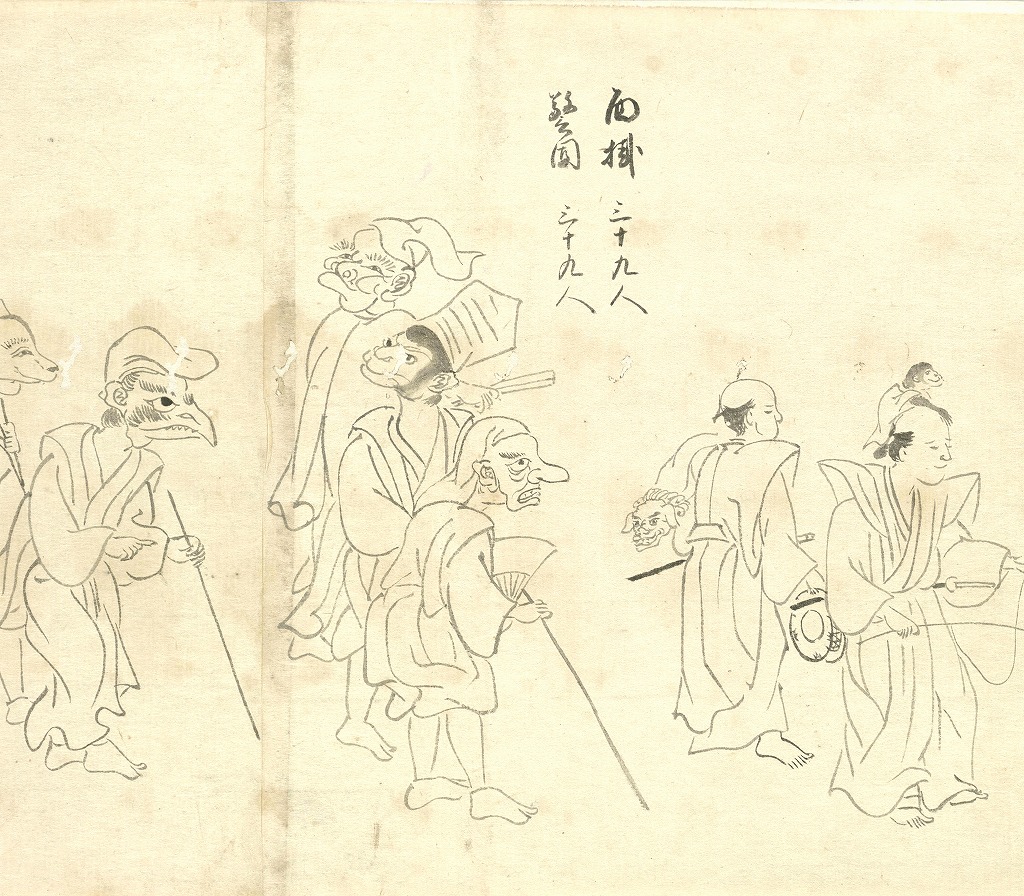 面掛 三十九人
警固 三十九人